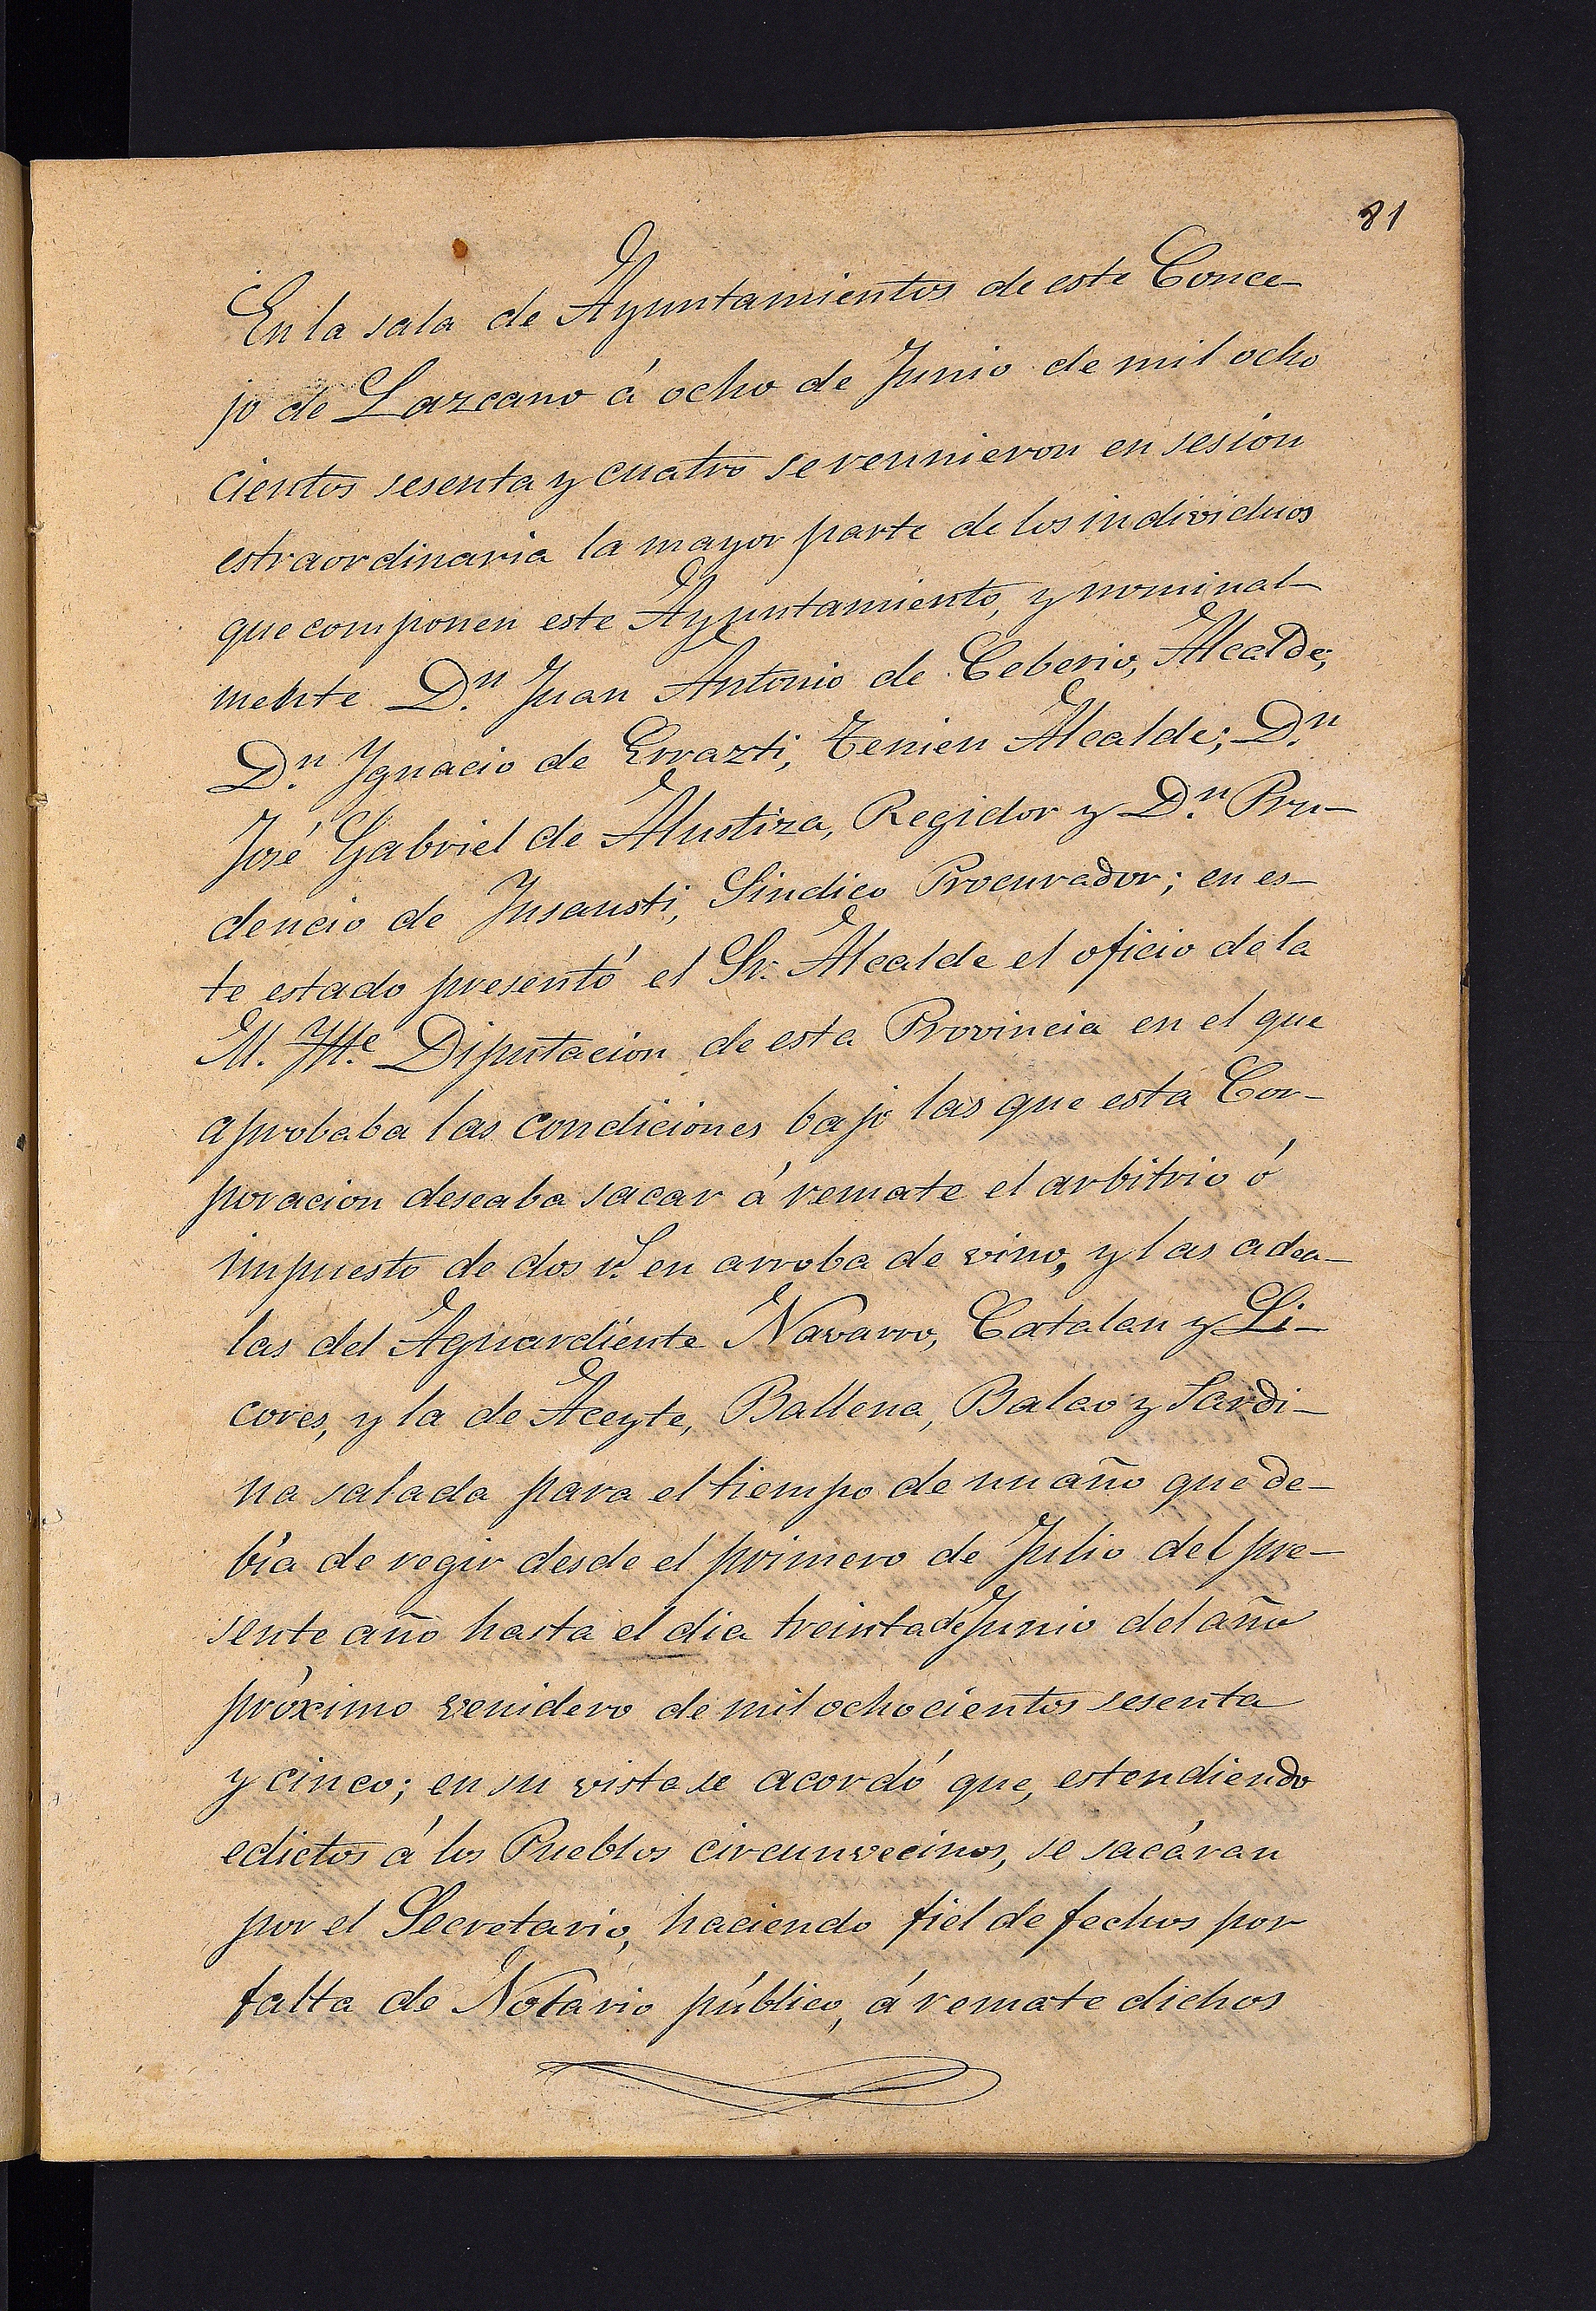 81
En la sala de Ayuntamientos de este Conce-
jo de Lazcano á ocho de Junio de mil ocho
cientos sesenta y cuatro se reunieron en sesion
estraordinaria la mayor parte de los individuos
que componen este Ayuntamiento, y nominal-
mente D.n Juan Antonio de Ceberio, Alcalde;
D.n Ignacio de Errazti, Tenien Alcalde; D.n
José Gabriel de Alustiza, Regidor y D.n Pru-
dencio de Insausti, Sindico Procurador; en es-
te estado presentó el Sr. Alcalde el oficio de la
M. Ytte Diputacion de esta Provincia en el que
aprobaba las condiciones bajo las que esta Cor-
poracion deseaba sacar á remate el arbitrio ó
impuesto de dos r.s en arroba de vino, y las adea-
las del Aguardiente Navarro, Catalan y Li-
cores, y la de Aceyte, Ballena, Balao y Sardi-
na salada para el tiempo de un año que de-
bía de regir desde el primero de Julio del pre-
sente año hasta el dia treinta de Junio del año
próximo venidero de mil ochocientos sesenta
y cinco; en su vista se acordó que, estendiendo
edictos á los Pueblos circunvecinos, se sacáran
por el Secretario, haciendo fiel de fechos por
falta de Notario público, á remate dichos